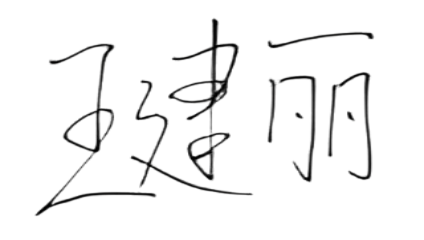 王建丽